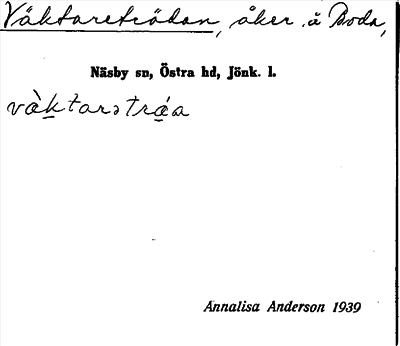 Väktareträdan, åker å Boda,
Näsby sn, Östra hd, Jönk. l.
vàktarətráa
Annalisa Anderson 1939